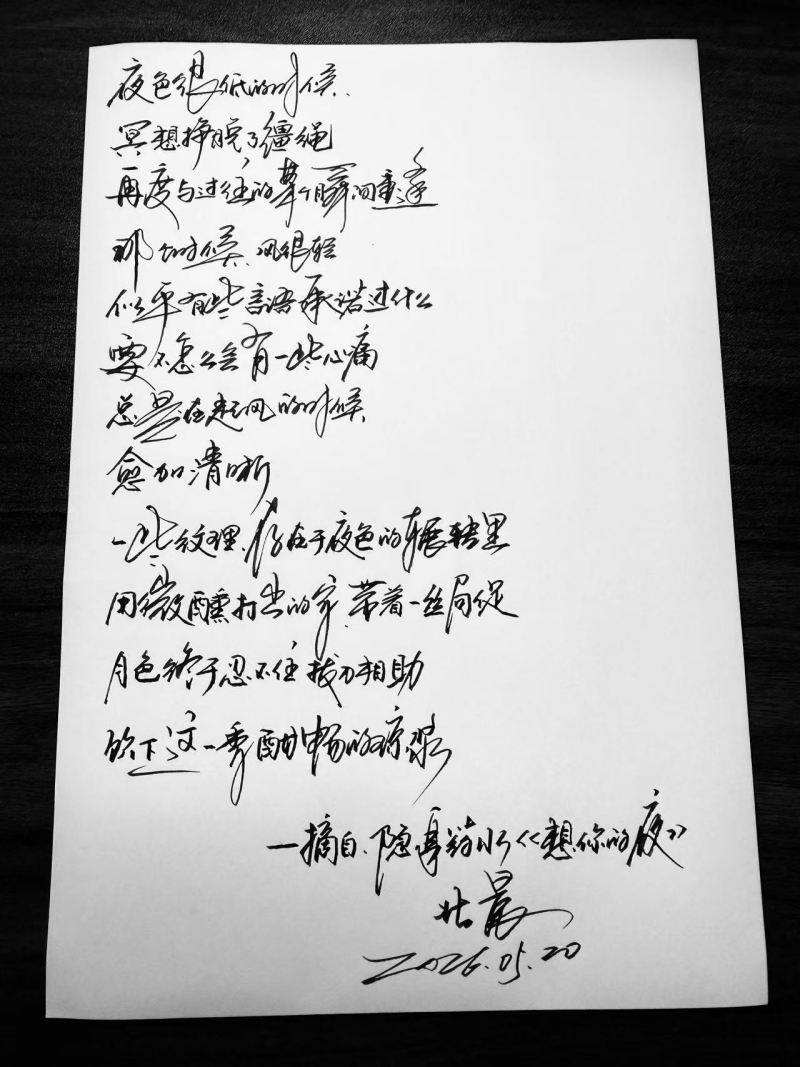 夜色很低的时候、
冥想挣脱了缰绳
再度与过往的某个瞬间重逢
那时候，风很轻
似乎有些言语承诺过什么
要不怎么会有一些心痛
总是在起风的时候
愈加清晰
一些纹理，存在于夜色的辗转里
用微醺打出的字，带着一丝局促
月色终于忍不住拔刀相助
饮下这一季酣畅的琼浆
—摘自、隐身药水《想你的夜》
2026.05.20